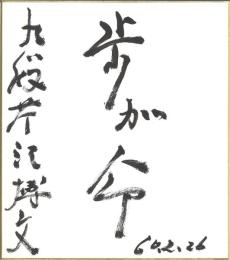 歩が命
九段芹沢博文
60.2.26